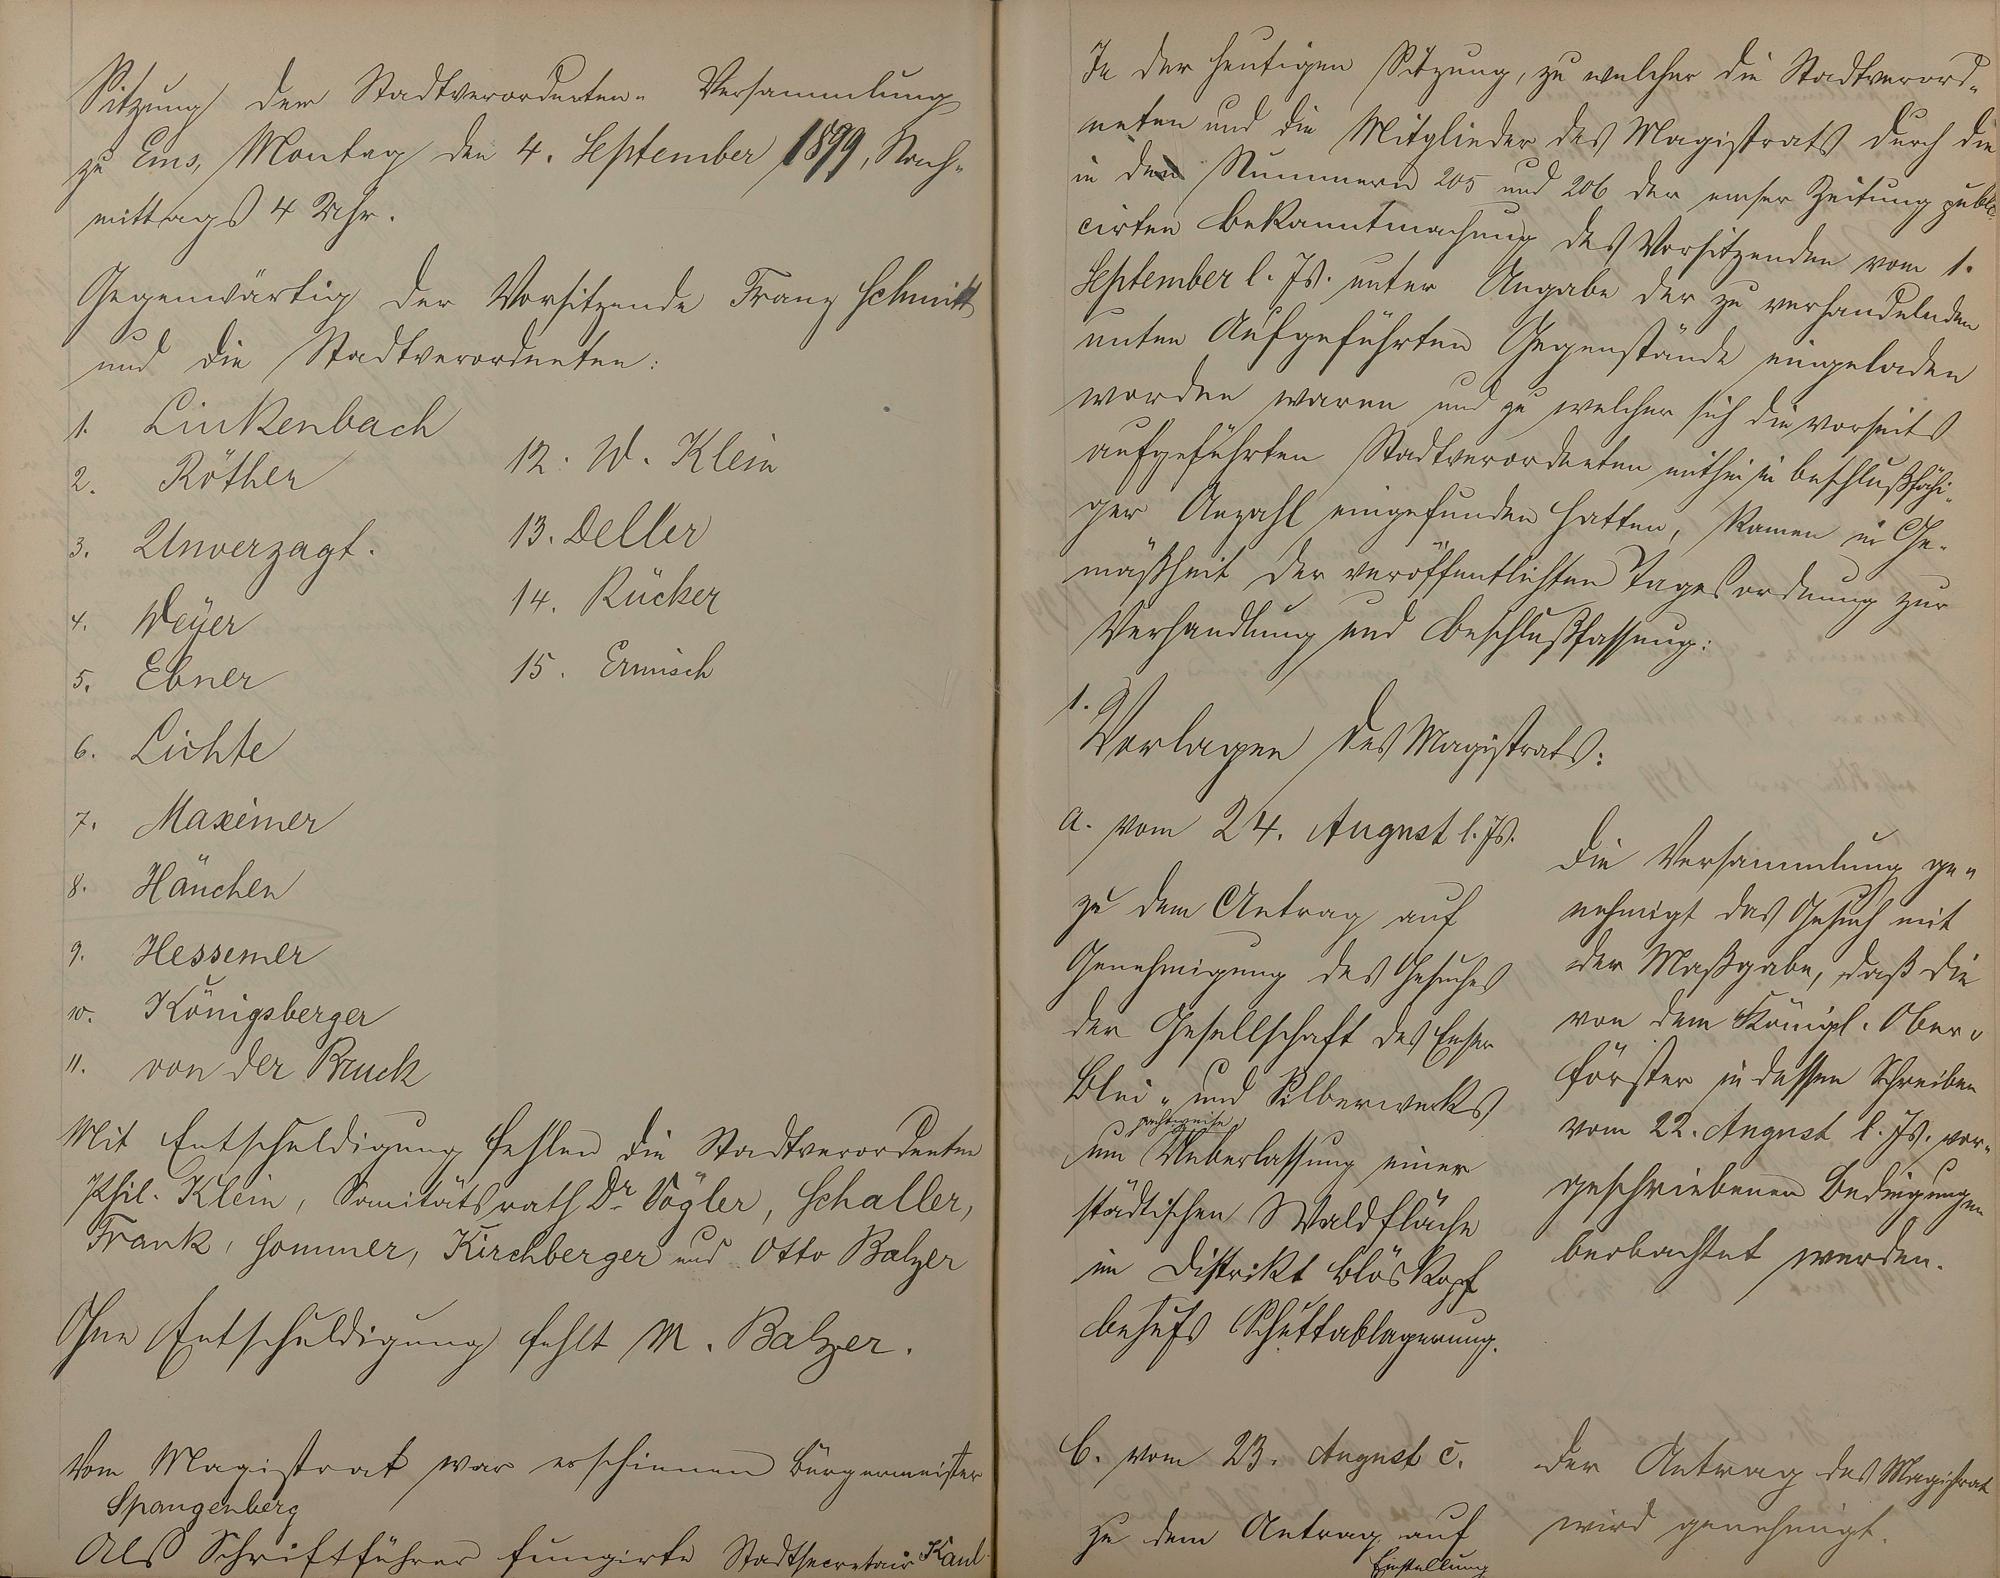 Sitzung der Stadtverordneten- Versammlung
zu Ems, Montag den 4. September 1899, Nach-
mittags 4 Uhr.
Gegenwärtig der Vorsitzende Franz Schmitt
und die Stadtverordneten:
1. Linkenbach
2. Röther
3. Unverzagt.
4. Meyer
5. Ebner
6. Lichte
7. Maximer
8. Hänchen
9. Hessemer
10. Königsberger
11. von der Bruck
12. W. Klein
13. Deller
14. Rücker
15. Ermisch
Mit Entschuldigung fehlen die Stadtverordneten
Phil. Klein, Sanitätsrath Dr. Vögler, Schaller,
Frank, Sommer, Kirchberger und Otto Balzer
Ohne Entschuldigung fehlt M. Balzer.
Vom Magistrat war erschienen Bürgermeister
Spangenberg
Als Schriftführer fungirte Stadtsecretair Kaul
In der heutigen Sitzung, zu welcher die Stadtverord-
neten und die Mitglieder des Magistrats durch die
in den Nummern 205 und 206 der emser Zeitung publi-
cirten Bekanntmachung des Vorsitzenden vom 1.
September l. Js. unter Angabe der zu verhandelnden
unten Aufgeführten Gegenstände eingeladen
worden waren und zu welcher sich die vorseits
aufgeführten Stadtverordneten mithin in beschlußfähi-
ger Anzahl eingefunden hatten, kamen in Ge-
mäßheit der veröffentlichten Tagesordnung zur
Verhandlung und Beschlußfassung:
1.
Vorlagen des Magistrats:
a. vom 24. August l. Js.
zu dem Antrag auf
Genehmigung des Gesuches
der Gesellschaft des Emser
Blei- und Silberwerks
pachtweise
um Ueberlassung einer
städtischen Waldfläche
im Distrikt Blöskopf
behufs Schuttablagerung.
Die Versammlung ge-
nehmigt das Gesuch mit
der Maßgabe, daß die
von dem Königl. Ober-
förster in dessen Schreiben
vom 22. August l. Js. vor-
geschriebenen Bedingungen
beobachtet werden.
b. vom 23. August c.
zu dem Antrag auf
Einstellung
Der Antrag des Magistrat
wird genehmigt.